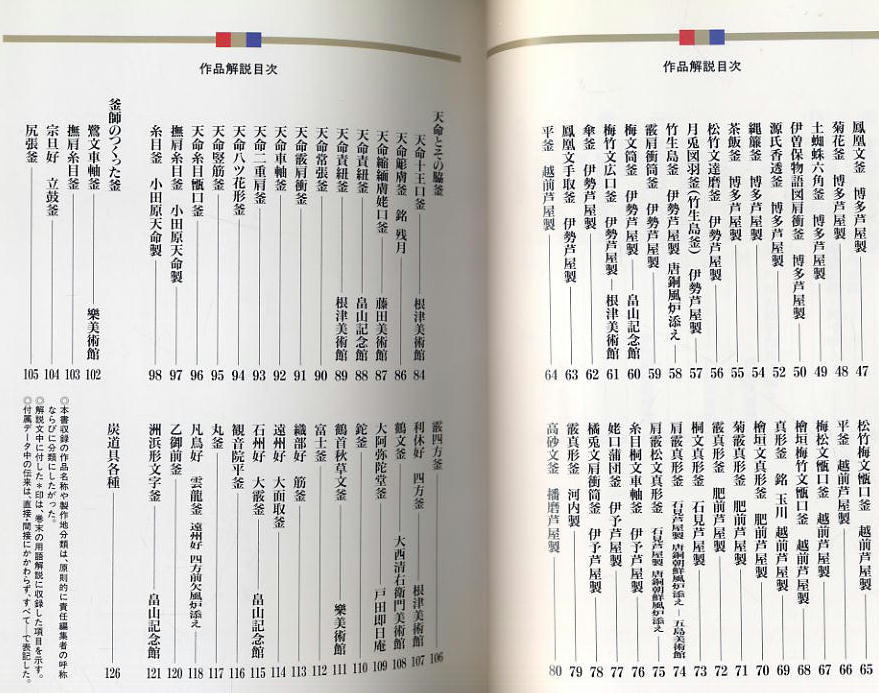 作品解説目次
鳳凰文釜 博多芦屋製 47
菊花釜 博多芦屋製 48
土蜘蛛六角釜 博多芦屋製 49
伊曽保物語図肩衝釜 博多芦屋製 50
源氏香透釜 博多芦屋製 52
縄簾釜 博多芦屋製 54
茶飯釜 博多芦屋製 55
松竹文達磨釜 伊勢芦屋製 56
月兎図羽釜(竹生島釜) 伊勢芦屋製 57
竹生島釜 伊勢芦屋製 唐銅風炉添え 58
霰肩衝筒釜 伊勢芦屋製 59
梅文筒釜 伊勢芦屋製 畠山記念館 60
梅竹文広口釜 伊勢芦屋製 根津美術館 61
傘釜 伊勢芦屋製 62
鳳凰文手取釜 伊勢芦屋製 63
平釜 越前芦屋製 64
松竹梅文甑口釜 越前芦屋製 65
平釜 越前芦屋製 66
梅松文甑口釜 越前芦屋製 67
檜垣梅竹文甑口釜 越前芦屋製 68
真形釜 銘 玉川 越前芦屋製 69
檜垣文真形釜 肥前芦屋製 70
菊霰真形釜 肥前芦屋製 71
霰真形釜 肥前芦屋製 72
桐文真形釜 石見芦屋製 73
肩霰真形釜 石見芦屋製 唐銅朝鮮風炉添え 五島美術館 74
肩霰松文真形釜 石見芦屋製 唐銅朝鮮風炉添え 75
糸目桐文車軸釜 伊予芦屋製 76
姥口蒲団釜 伊予芦屋製 77
橘兎文肩衝筒釜 伊予芦屋製 78
霰真形釜 河内製 79
高砂文釜 播磨芦屋製 80
作品解説目次
天命とその脇釜
天命十王口釜 根津美術館 84
天命彫膚釜 銘 残月 86
天命縮緬膚姥口釜 藤田美術館 87
天命責紐釜 畠山記念館 88
天命責紐釜 根津美術館 89
天命常張釜 90
天命霰肩衝釜 91
天命車軸釜 92
天命二重肩釜 93
天命八ツ花形釜 94
天命竪筋釜 95
天命糸目甑口釜 96
撫肩糸目釜 小田原天命製 97
糸目釜 小田原天命製 98
釜師のつくった釜
鷺文車軸釜 樂美術館 102
撫肩糸目釜 103
宗旦好 立鼓釜 104
尻張釜 105
霰四方釜 106
利休好 四方釜 根津美術館 107
鶴文釜 大西清右衛門美術館 108
大阿弥陀堂釜 戸田即日庵 109
鉈釜 110
鶴首秋草文釜 樂美術館 111
富士釜 112
織部好 筋釜 113
遠州好 大面取釜 114
石州好 大霰釜 畠山記念館 115
観音院平釜 116
丸釜 117
凡鳥好 雲龍釜 遠州好 四方前欠風炉添え 118
乙御前釜 120
洲浜形文字釜 畠山記念館 121
炭道具各種 126
◎本書収録の作品名称や製作地分類は、原則的に責任編集者の呼称
ならびに分類にしたがった。
◎解説文中に付した*印は、巻末の用語解説に収録した項目を示す。
◎付属データ中の伝来は、直接・間接にかかわらず、すべて―で表記した。